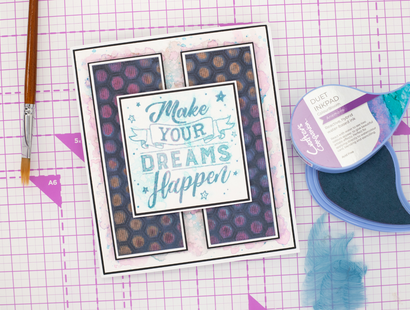 Make
YOUR
DREAMS
Happen
DUET
INKPAD
Crafter's
Companion
5.
A6